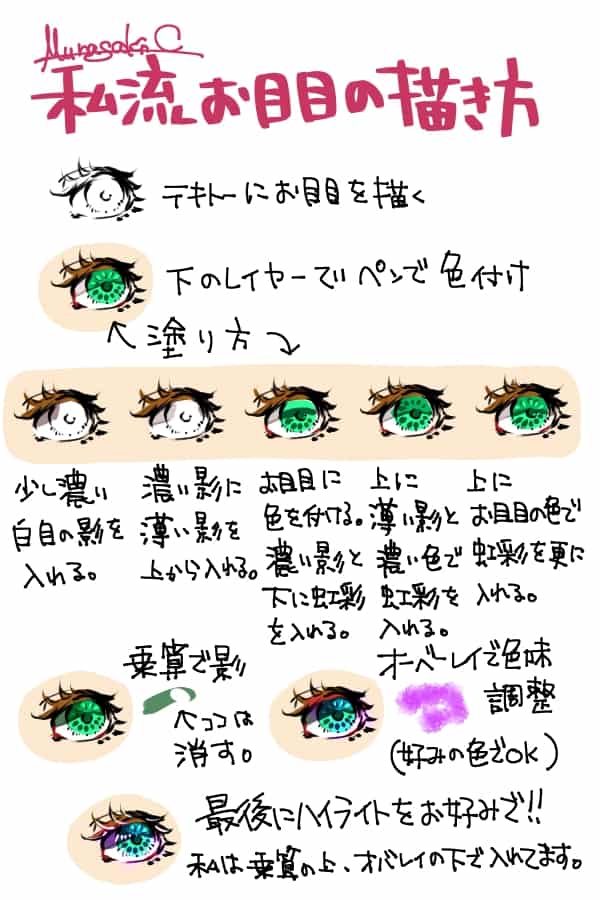 Murasaki C
私流お目目の描き方
テキトーにお目目を描く
下のレイヤーでペンで色付け
↖塗り方↘
少し濃い
白目の影を
入れる。
濃い影に
薄い影を
上から入れる。
お目目に
色を付ける。
濃い影と
下に虹彩
を入れる。
上に
薄い影と
濃い色で
虹彩を
入れる。
上に
お目目の色で
虹彩を更に
入れる。
乗算で影
↖ココは
消す。
オーバーレイで色味
調整
(好みの色でOK)
最後にハイライトをお好みで!!
私は乗算の上、オバレイの下で入れてます。